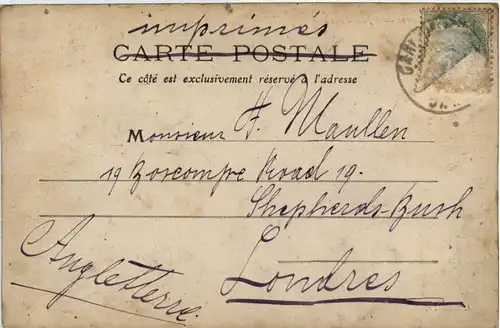 imprimés
CARTE POSTALE
Ce côté est exclusivement réservé à l'adresse
Monsieur F. Maullen
19 Boscompre Road 19.
Shepherds-Bush
Londres
Angletterre